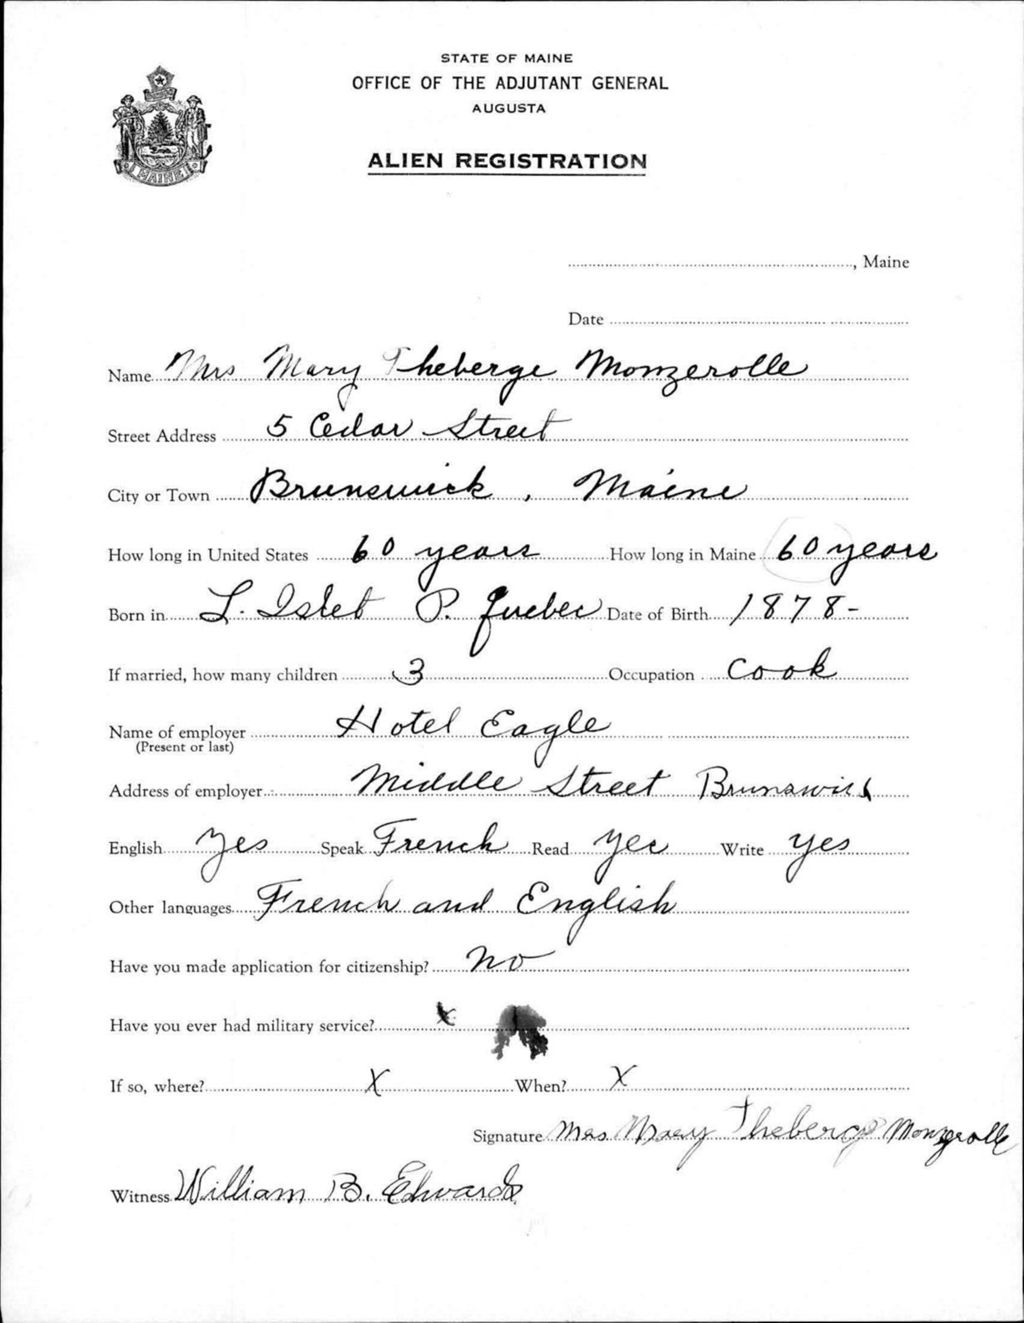 STATE OF MAINE
OFFICE OF THE ADJUTANT GENERAL
AUGUSTA
ALIEN REGISTRATION
MAINE
, Maine
Date
Name Mrs Mary Theberge Monzerolle
Street Address 5 Cedar Street
City or Town Brunswick, Maine
How long in United States 60 years How long in Maine 60 years
Born in L. Islet P. Quebec Date of Birth 1878-
If married, how many children 3 Occupation Cook
Name of employer Hotel Eagle
(Present or last)
Address of employer Middle Street Brunswick
English Yes Speak French Read Yes Write Yes
Other languages French and English
Have you made application for citizenship? No
Have you ever had military service? x
If so, where? X When? X
Signature Mrs. Mary Theberge Monzerolle
Witness William B. Edwards